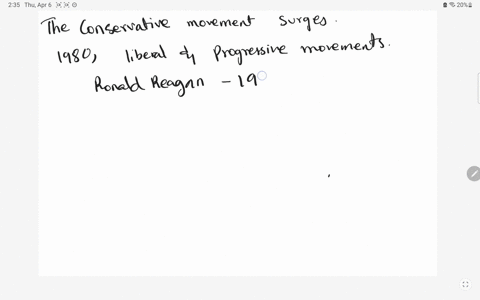 2:35 Thu, Apr 6
20%
The Conservative movement surges.
1980, liberal & Progressive movements.
Ronald Reagan - 19